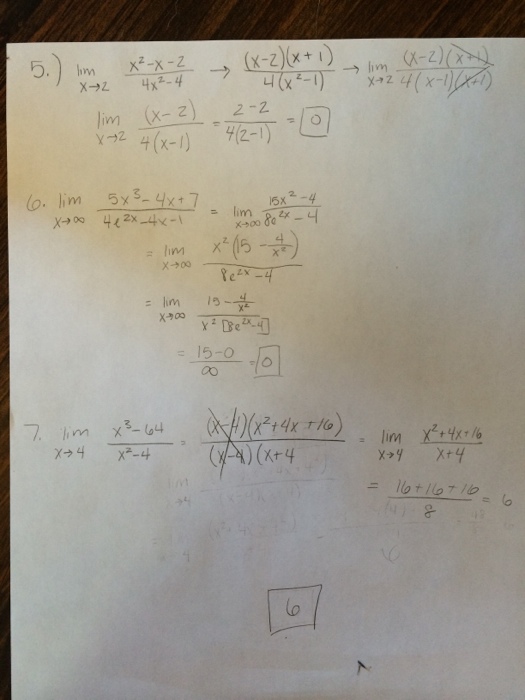 5.) lim x→2 x²-x-2 / 4x²-4 → (x-2)(x+1) / 4(x²-1) → lim x→2 (x-2)(x+1) / 4(x-1)(x+1)
lim x→2 (x-2) / 4(x-1) = 2-2 / 4(2-1) = 0
6. lim x→∞ 5x³-4x+7 / 4e^2x-4x-1 = lim x→∞ 15x²-4 / 8e^2x-4
= lim x→∞ x²(15-4/x²) / 8e^2x-4
= lim x→∞ 15-4/x² / x²[8e^2x-4]
= 15-0 / ∞ = 0
7. lim x→4 x³-64 / x²-4 = (x-4)(x²+4x+16) / (x-4)(x+4 = lim x→4 x²+4x+16 / x+4
= 16+16+16 / 8 = 6
6